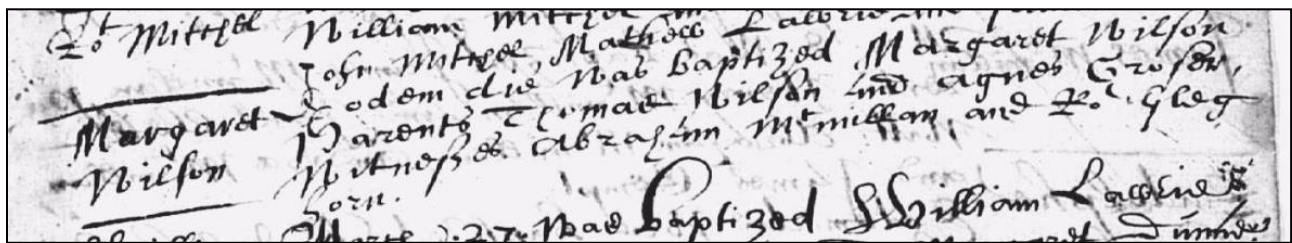 Rot Mitchel William Mitchel
John Mitchel, Mathew Lawrie
Eodem die was baptized Margaret Wilson
Margaret Parents Thomas Wilson and Agnes Groser,
Wilson Witnesses Abraham McMillan and Ro. Gleg
born.
March 27. was baptized William Lawrie